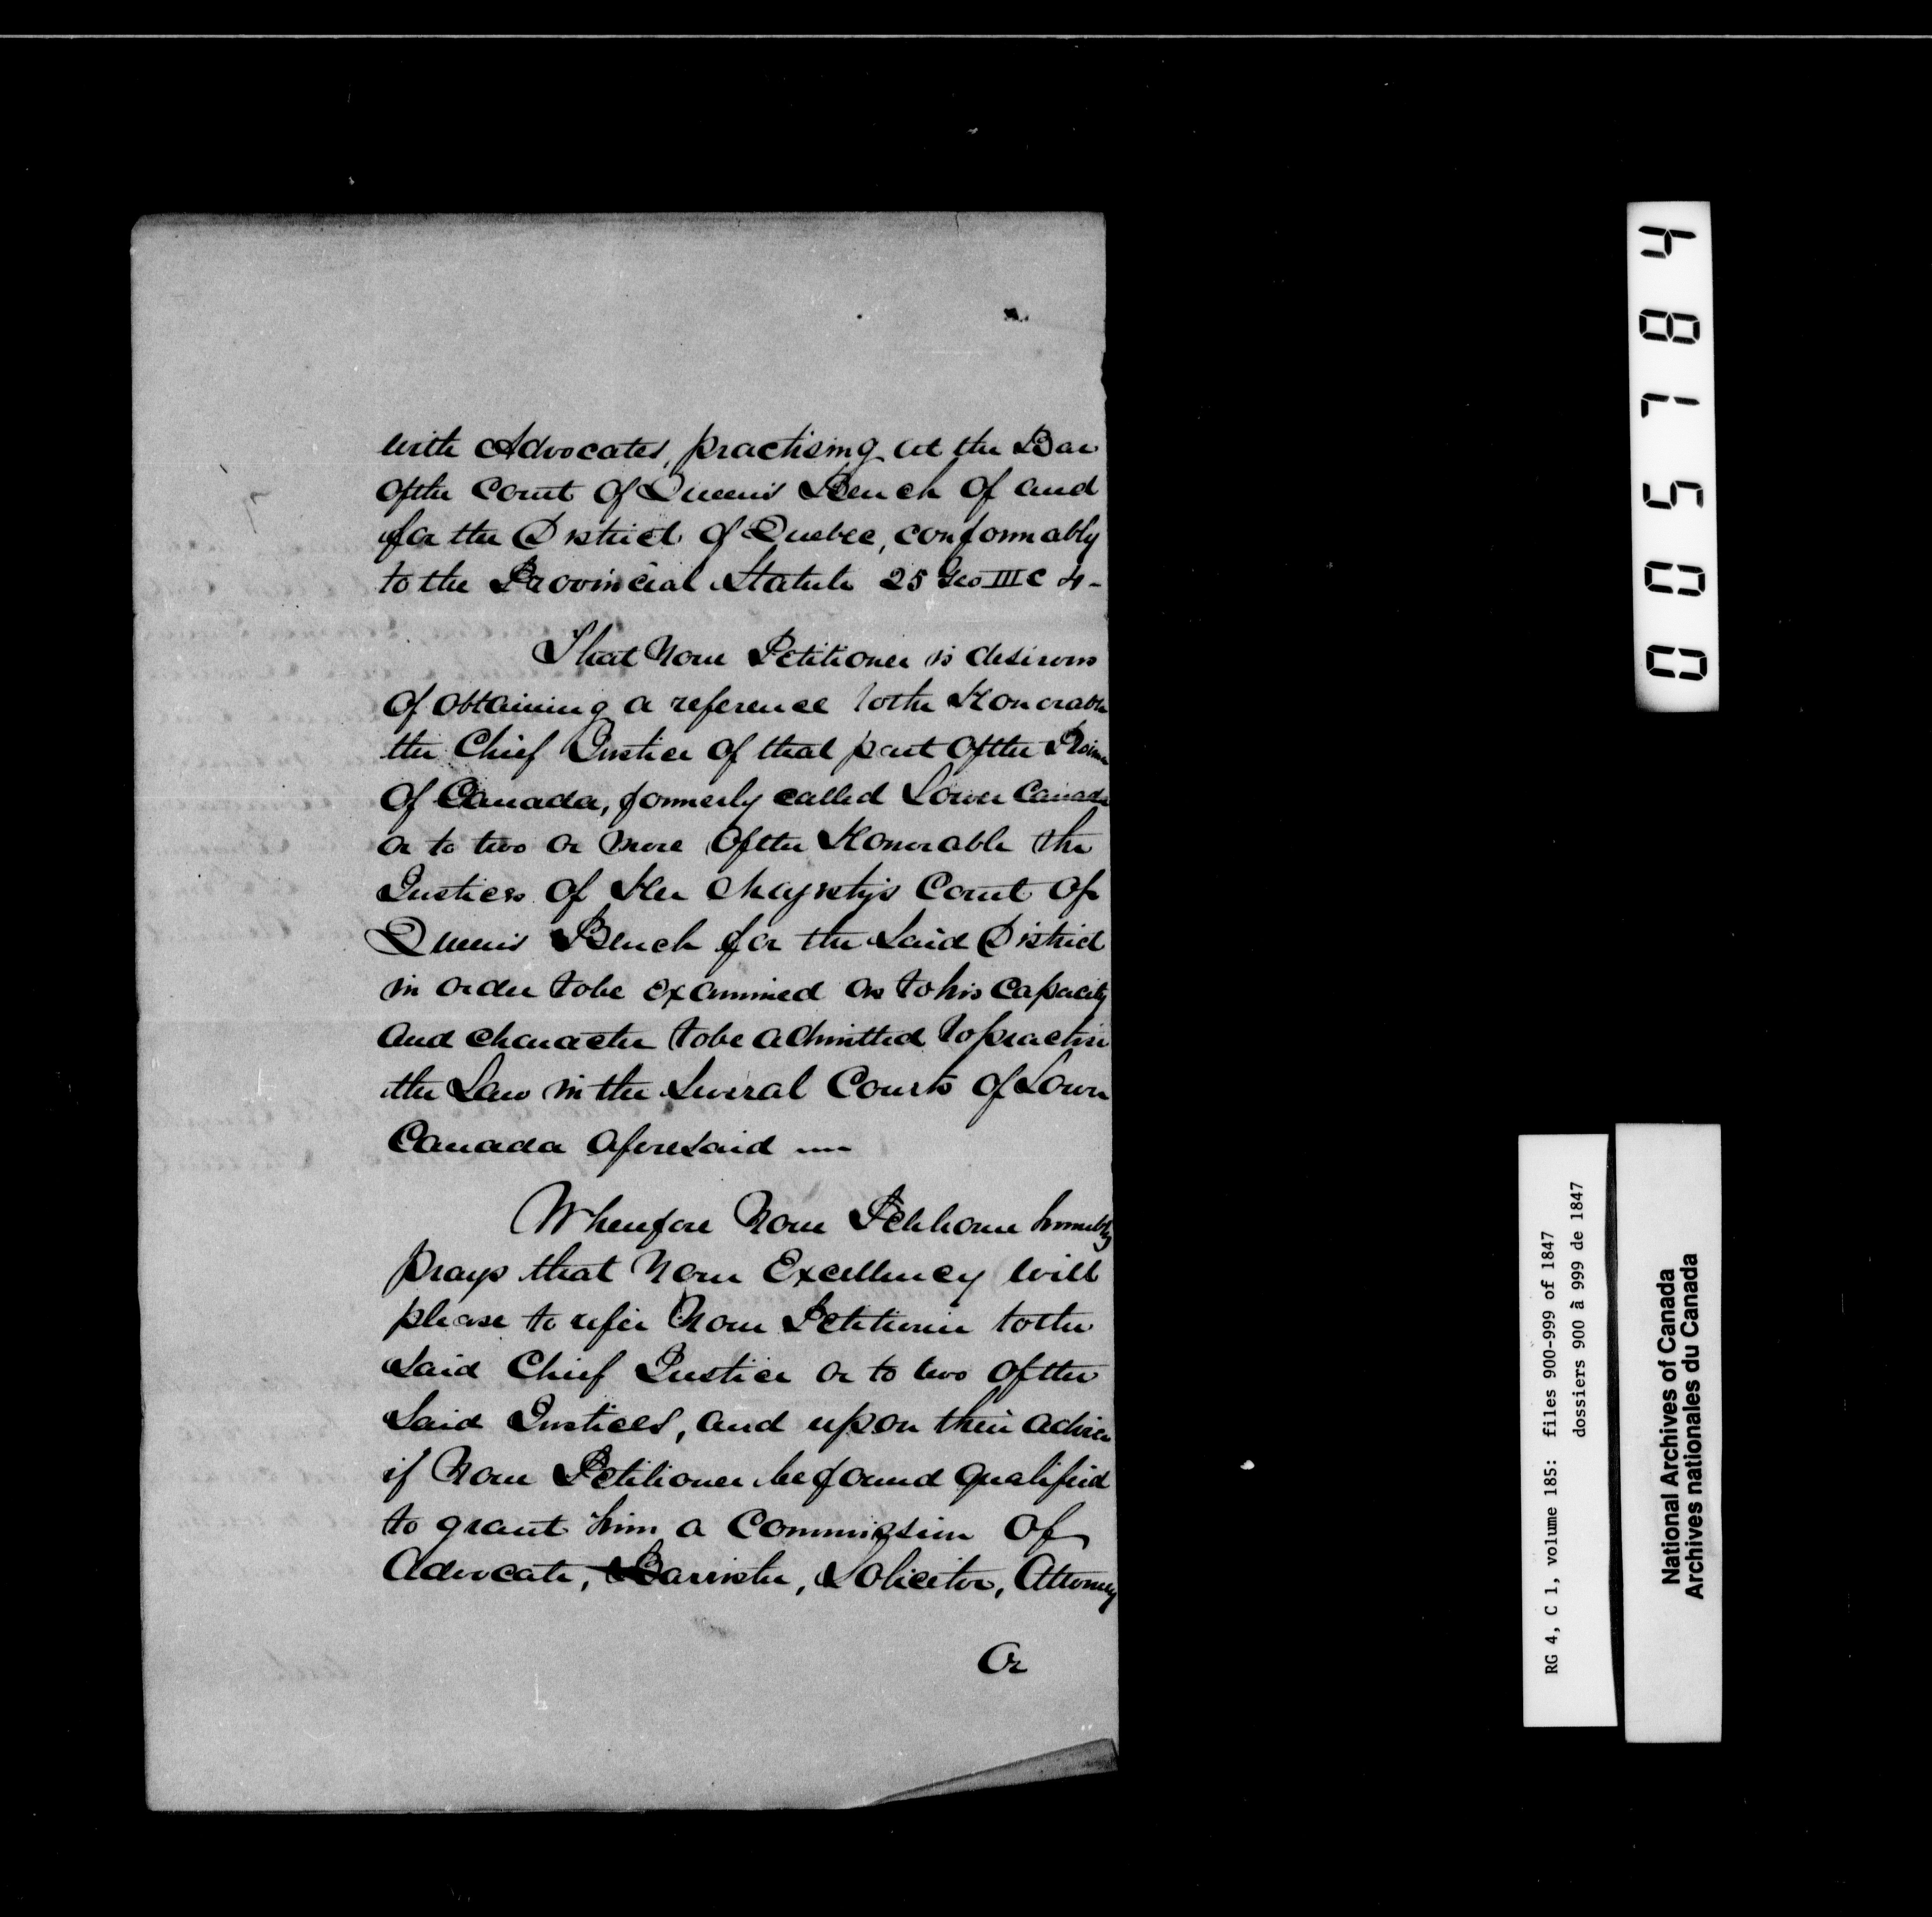 with Advocates, practising at the Bar
of the Court of Queen's Bench of and
for the District of Quebec, conformably
to the Provincial Statute 25 Geo III C 4-
That Your Petitioner is desirous
of obtaining a reference to the Honorable
the Chief Justice of that part of the
of Canada, formerly called Lower Canada
or to two or more of the Honorable the
Justices of Her Majesty's Court of
Queen's Bench for the Said District
in order to be examined as to his Capacity
and character to be admitted to practise
the Law in the Several Courts of Lower
Canada aforesaid
Wherefore Your Petitioner humbly
prays that Your Excellency will
please to refer Your Petitioner to the
Said Chief Justice or to two of the
Said Justices, and upon their advice
if Your Petitioner be found qualified
to grant him a Commission of
Advocate, Barrister, Solicitor, Attorney
Or
005784
RG 4, C 1, volume 185: files 900-999 of 1847
dossiers 900 à 999 de 1847
National Archives of Canada
Archives nationales du Canada